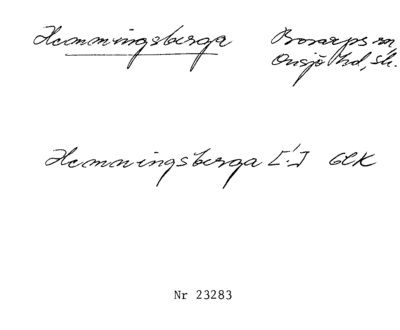 Hemmingsberga Bosarps sn,
Onsjö hd, Sk.
Hemmingsberga [!] GEK
Nr 23283